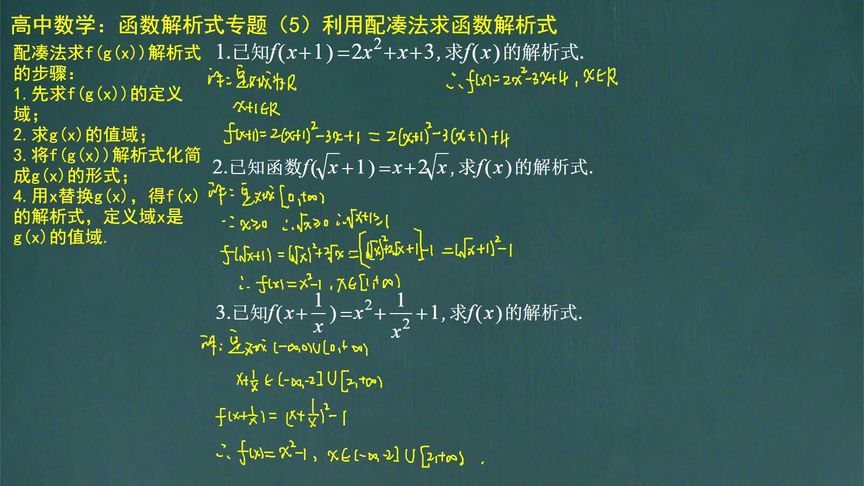 高中数学：函数解析式专题（5）利用配凑法求函数解析式
配凑法求f(g(x))解析式
的步骤：
1.先求f(g(x))的定义
域；
2.求g(x)的值域；
3.将f(g(x))解析式化简
成g(x)的形式；
4.用x替换g(x)，得f(x)
的解析式，定义域x是
g(x)的值域.
1.已知f(x+1)=2x²+x+3,求f(x)的解析式.
解：定义域为R
x+1∈R
f(x+1)=2(x+1)²-3x+1=2(x+1)²-3(x+1)+4
∴f(x)=2x²-3x+4，x∈R
2.已知函数f(√x+1)=x+2√x,求f(x)的解析式.
解：定义域[0,+∞)
∵x≥0 ∴√x≥0 ∴√x+1≥1
f(√x+1)=(√x)²+2√x=[(√x)²+2√x+1]-1=(√x+1)²-1
∴f(x)=x²-1，x∈[1,+∞)
3.已知f(x+1/x)=x²+1/x²+1,求f(x)的解析式.
解：定义域(-∞,0)∪[0,+∞)
x+1/x∈(-∞,-2]∪[2,+∞)
f(x+1/x)=(x+1/x)²-1
∴f(x)=x²-1，x∈(-∞,-2]∪[2,+∞).